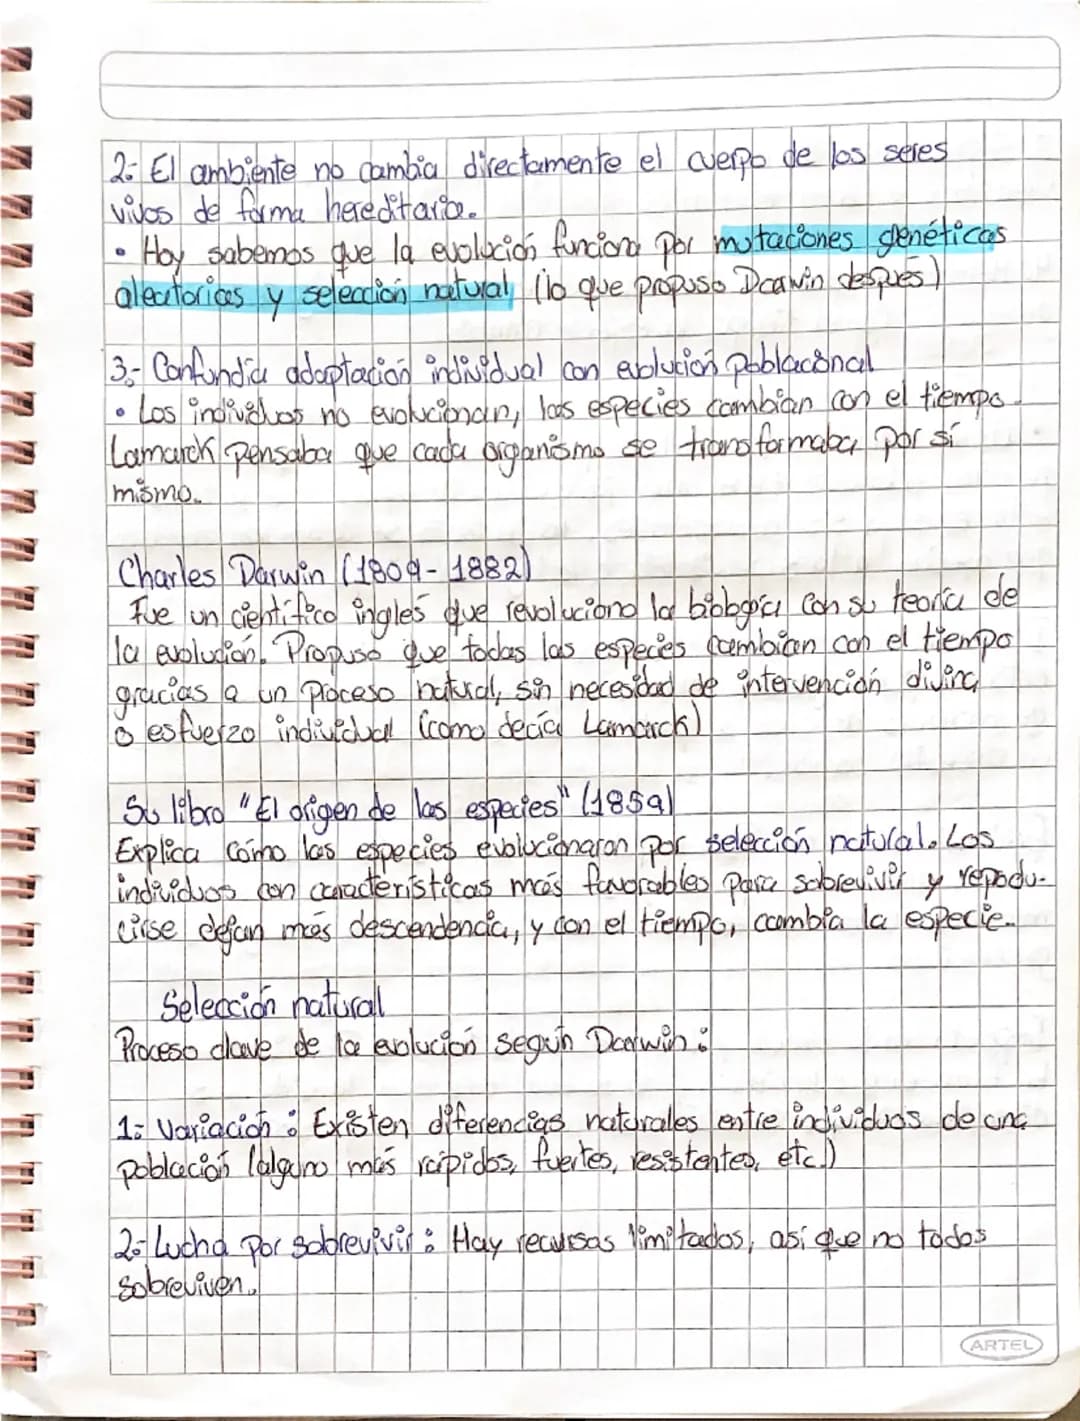 2.- El ambiente no cambia directamente el cuerpo de los seres
vivos de forma hereditaria.
• Hoy sabemos que la evolución funciona por mutaciones genéticas
aleatorias y selección natural (lo que propuso Darwin después)
3.- Confundía adaptación individual con evolución poblacional
• Los individuos no evolucionan, las especies cambian con el tiempo.
Lamarck pensaba que cada organismo se transformaba por sí
mismo.
Charles Darwin (1809-1882)
Fue un científico inglés que revoluciono la biología con su teoría de
la evolución. Propuso que todas las especies cambian con el tiempo
gracias a un proceso natural, sin necesidad de intervención divina
o esfuerzo individual (como decía Lamarck)
Su libro "El origen de las especies" (1859)
Explica cómo las especies evolucionaron por selección natural. Los
individuos con características más favorables para sobrevivir y repodu-
cirse dejan más descendencia, y con el tiempo, cambia la especie.
Selección natural
Proceso clave de la evolución según Darwin:
1.- Variación: Existen diferencias naturales entre individuos de una
población (alguno más rápidos, fuertes, resistentes, etc.)
2.- Lucha por sobrevivir: Hay recursas limitados, así que no todos
sobreviven.
ARTEL